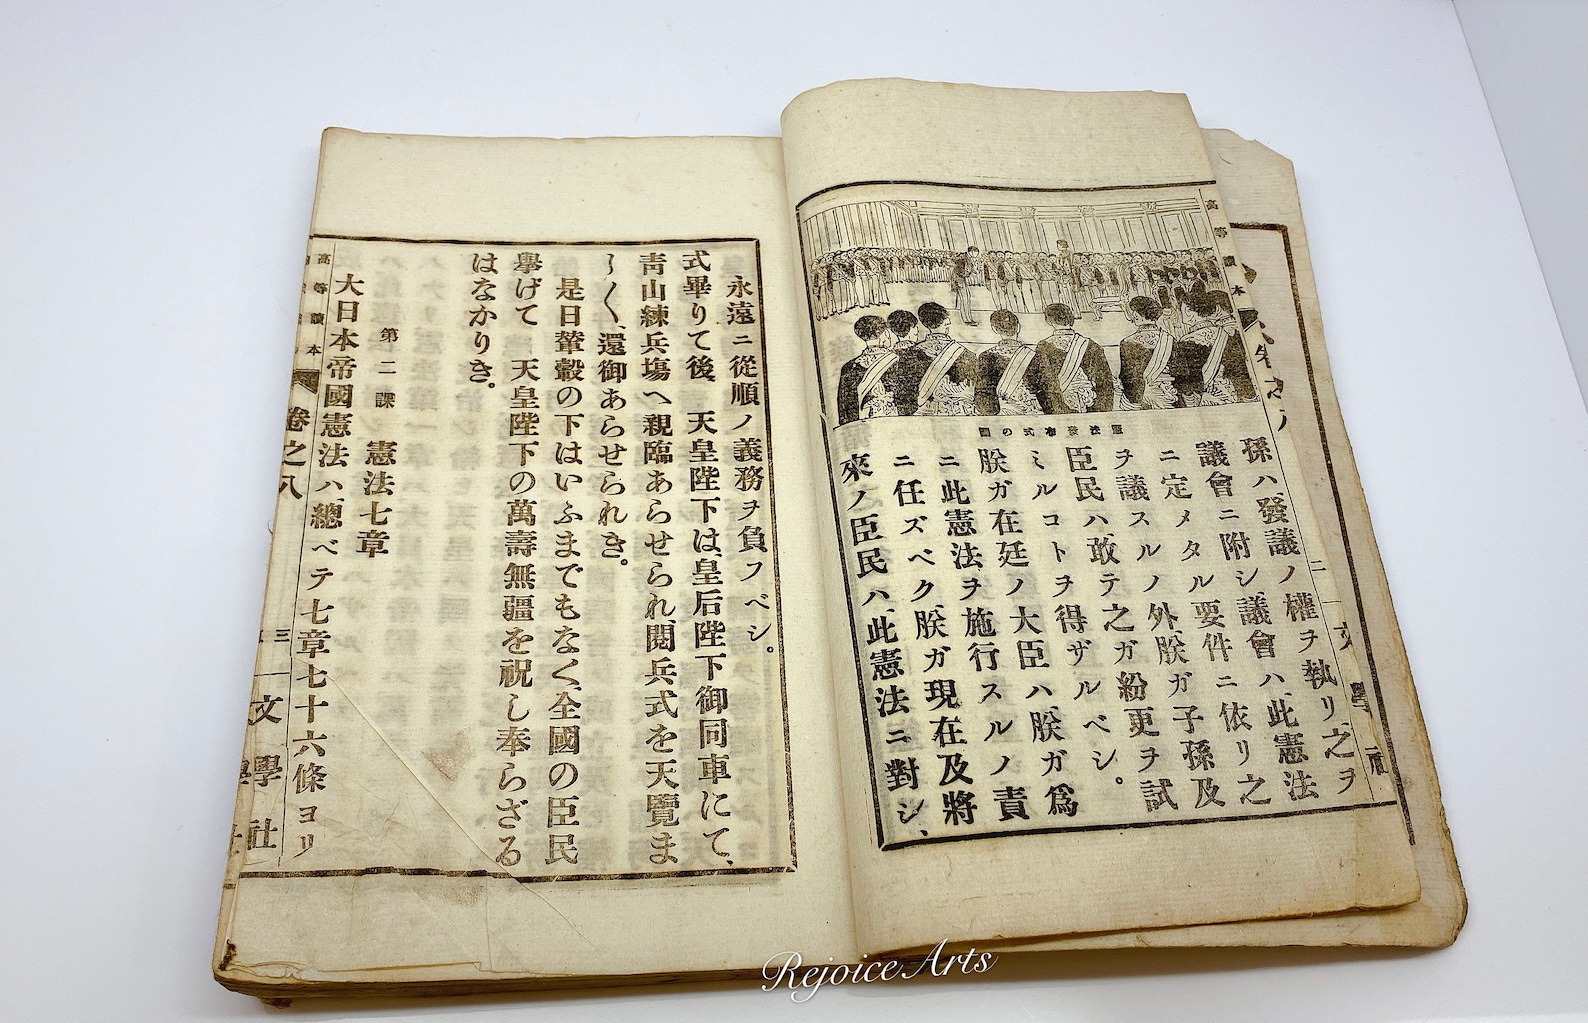 高等讀本
孫ハ、發議ノ權ヲ執リ、之ヲ
議會ニ附シ、議會ハ、此憲法
ニ定メタル要件ニ依リ之
ヲ議スルノ外、朕ガ子孫及
臣民ハ、敢テ之ガ紛更ヲ試
ミルコトヲ得ザルベシ。
朕ガ在廷ノ大臣ハ、朕ガ爲
ニ此憲法ヲ施行スルノ責
ニ任ズベク、朕ガ現在及將
來ノ臣民ハ、此憲法ニ對シ、
憲法發布式の圖
永遠ニ從順ノ義務ヲ負フベシ。
式畢りて後、天皇陛下は、皇后陛下御同車にて、
靑山練兵塲へ親臨あらせられ、閲兵式を天覽ま
し〱く、還御あらせられき。
是日輦轂の下はいふまでもなく、全國の臣民
擧げて 天皇陛下の萬壽無疆を祝し奉らざる
はなかりき。
第二課 憲法七章
大日本帝國憲法ハ、總ベテ七章七十六條ヨリ
高等讀本 卷之八 三 文學社
Rejoice Arts